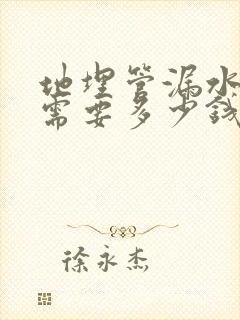 地埋管漏水
需要多少錢
徐永杰